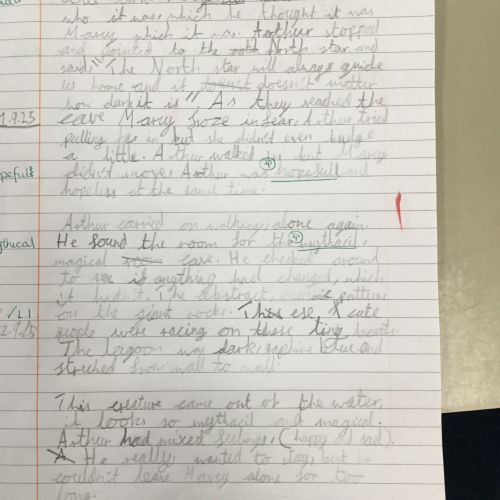 who it was, which he thought it was
Marcy which it was. Arthur stopped
and pointed to the North star and
said, "The North star will always guide
us home and it doesn't matter
how dark it is". As they reached the
1.9.25 cave Marcy froze in fear, Arthur tried
pulling her in but she didn't even budge
a little. Arthur walked but Marcy
pefull didn't move, Arthur was hopefull and
hopeless at the same time.
Arthur carried on walking, alone again.
thical He found the room for the mythacil,
magical cave. He checked around
to see if anything had changed, which
it hadn't. The abstract, patterns
on the giant rocks. cute
✓LI people were racing on these boats.
2.9.25 The lagoon was dark, saphire blue and
streched from wall to wall.
This creature came out of the water,
it looks so mythacil and magical.
Arthur had mixed feelings, (happy or sad).
He really wanted to stay, but he
couldn't leave Marcy alone for too
long.